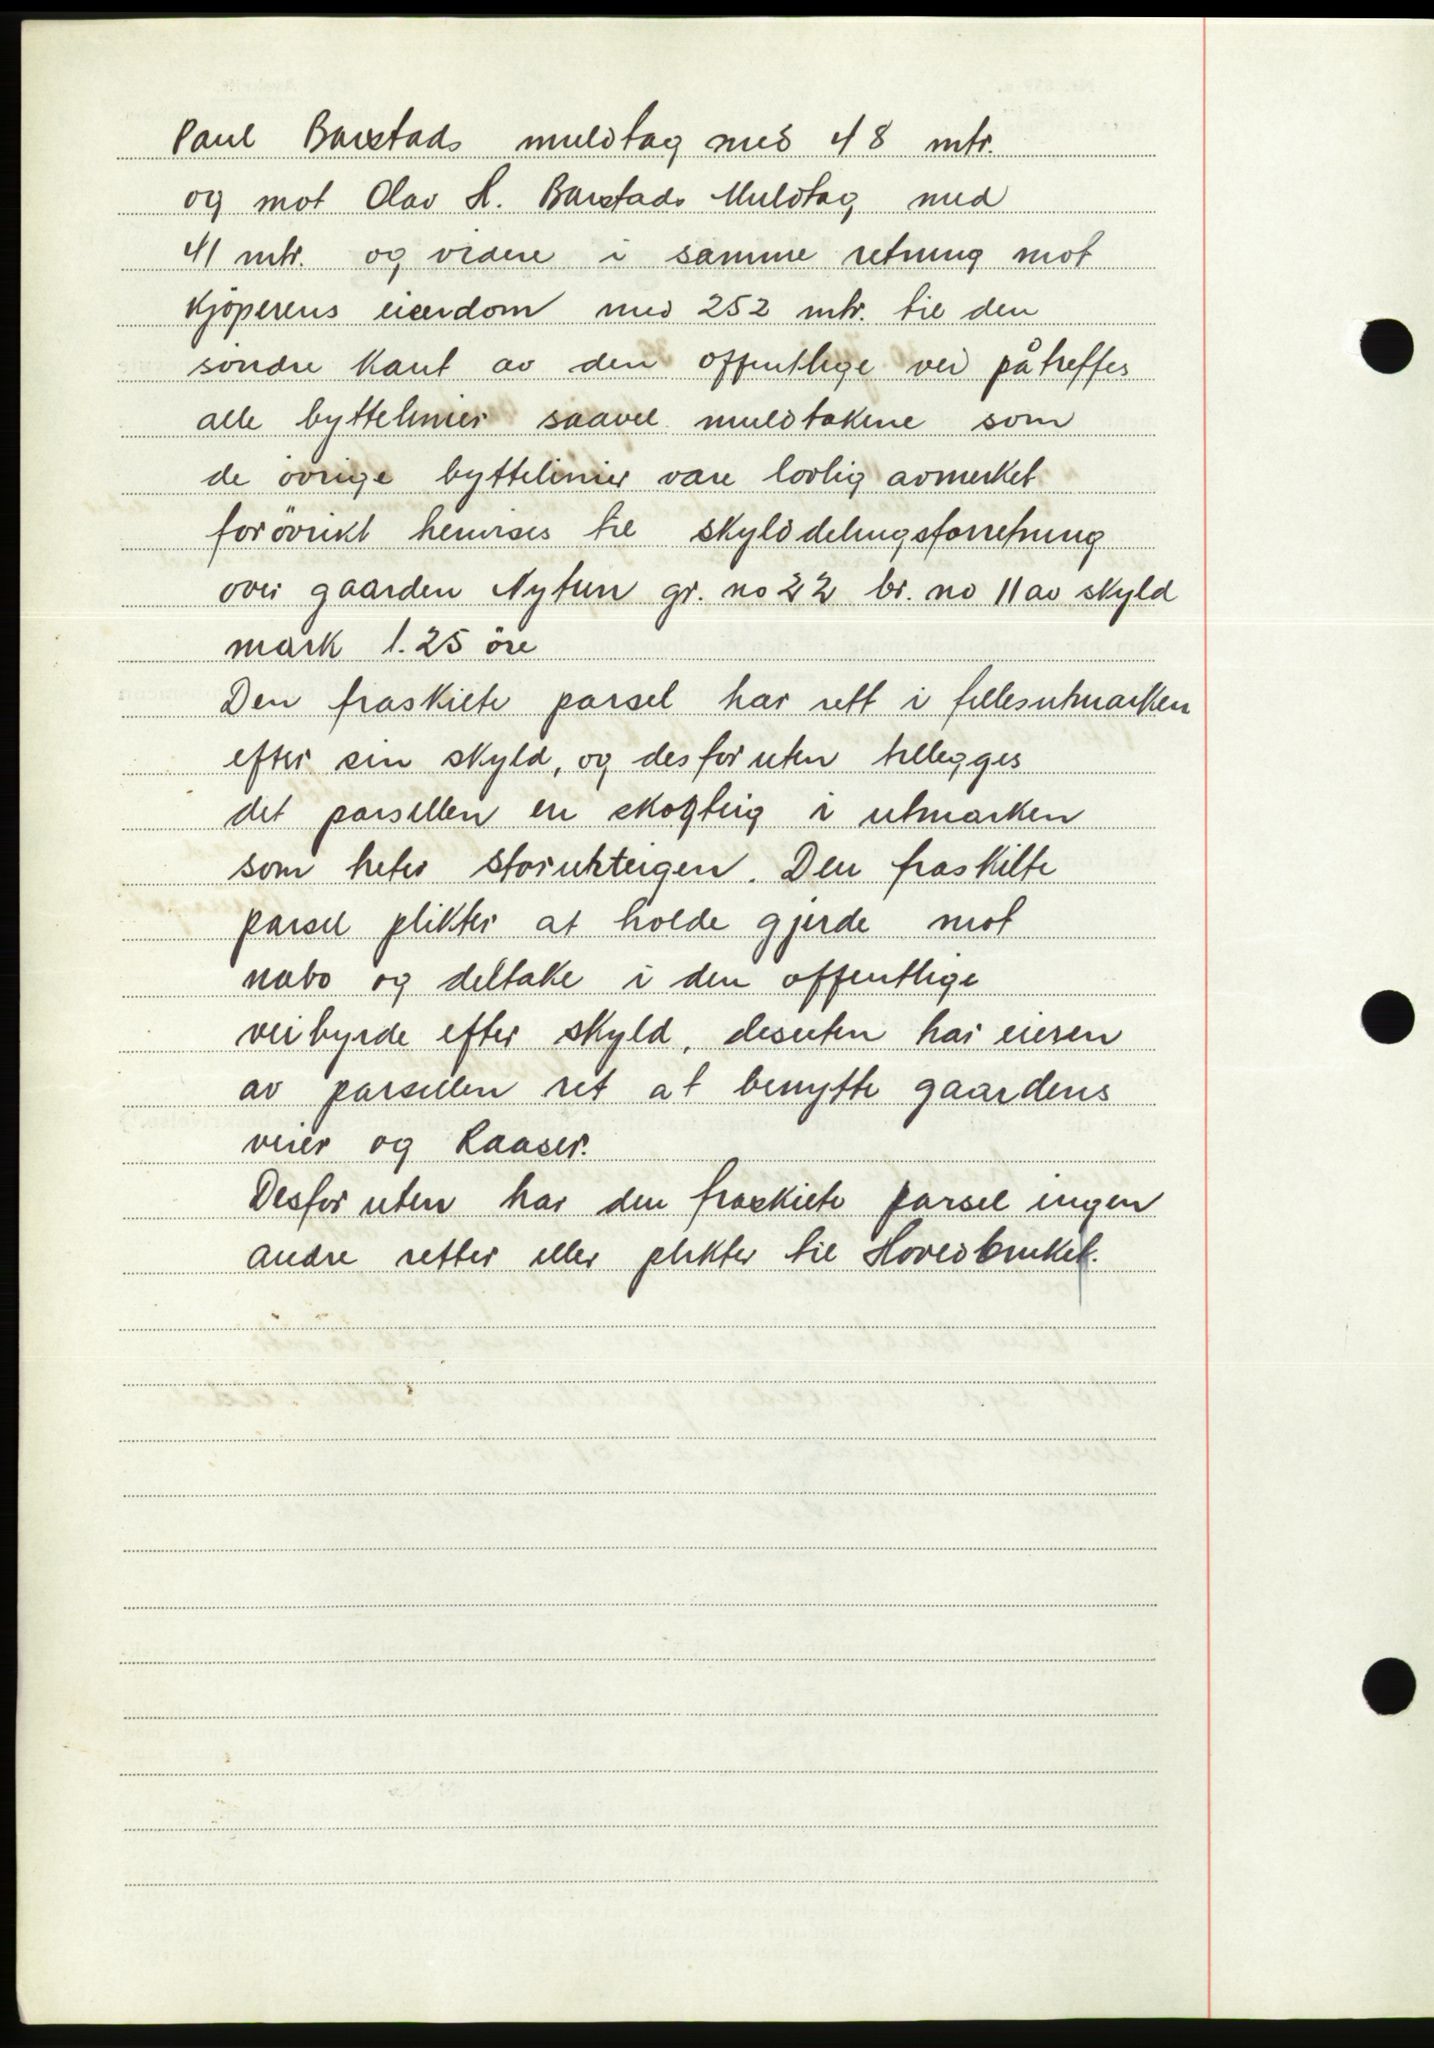 Paul Barstads muldtag med 48 mtr.
og mot Olav H. Barstads Muldtag med
41 mtr. og videre i samme retning mot
Kjöperens eiendom med 252 mtr. til den
söndre kant av den offentlige vei påtreffes
alle byttelinier saavel muldtakene som
de övrige byttelinier vare lovlig avmerket
forövrikt henvises til skylddelingsforretning
over gaarden Nytun gr. no 22 br. no 11 av skyld
mark 1.25 öre
Den fraskilte parsel har rett i fellesutmarken
efter sin skyld, og desforuten tillegges
det parsellen en skogteig i utmarken
som heter Den fraskilte
parsel plikter at holde gjerde mot
nabo og deltake i den offentlige
veibyrde efter skyld, desuten har eieren
av parsellen ret at benytte gaardens
veier og Raaser.
Desforuten har den fraskilte parsel ingen
andre retter eller plikter til Hovedbruket.